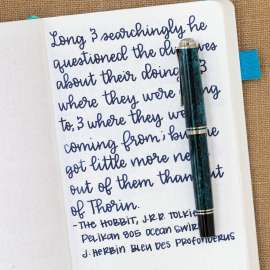 Long & searchingly he
questioned the
about their doings &
where they were
to, & where they were
coming from; but he
got little more
out of them than out
of Thorin.
- THE HOBBIT, J.R.R. TOLKIEN
PELIKAN 805 OCEAN SWIRL
J. HERBIN BLEU DES PROFONDEURS